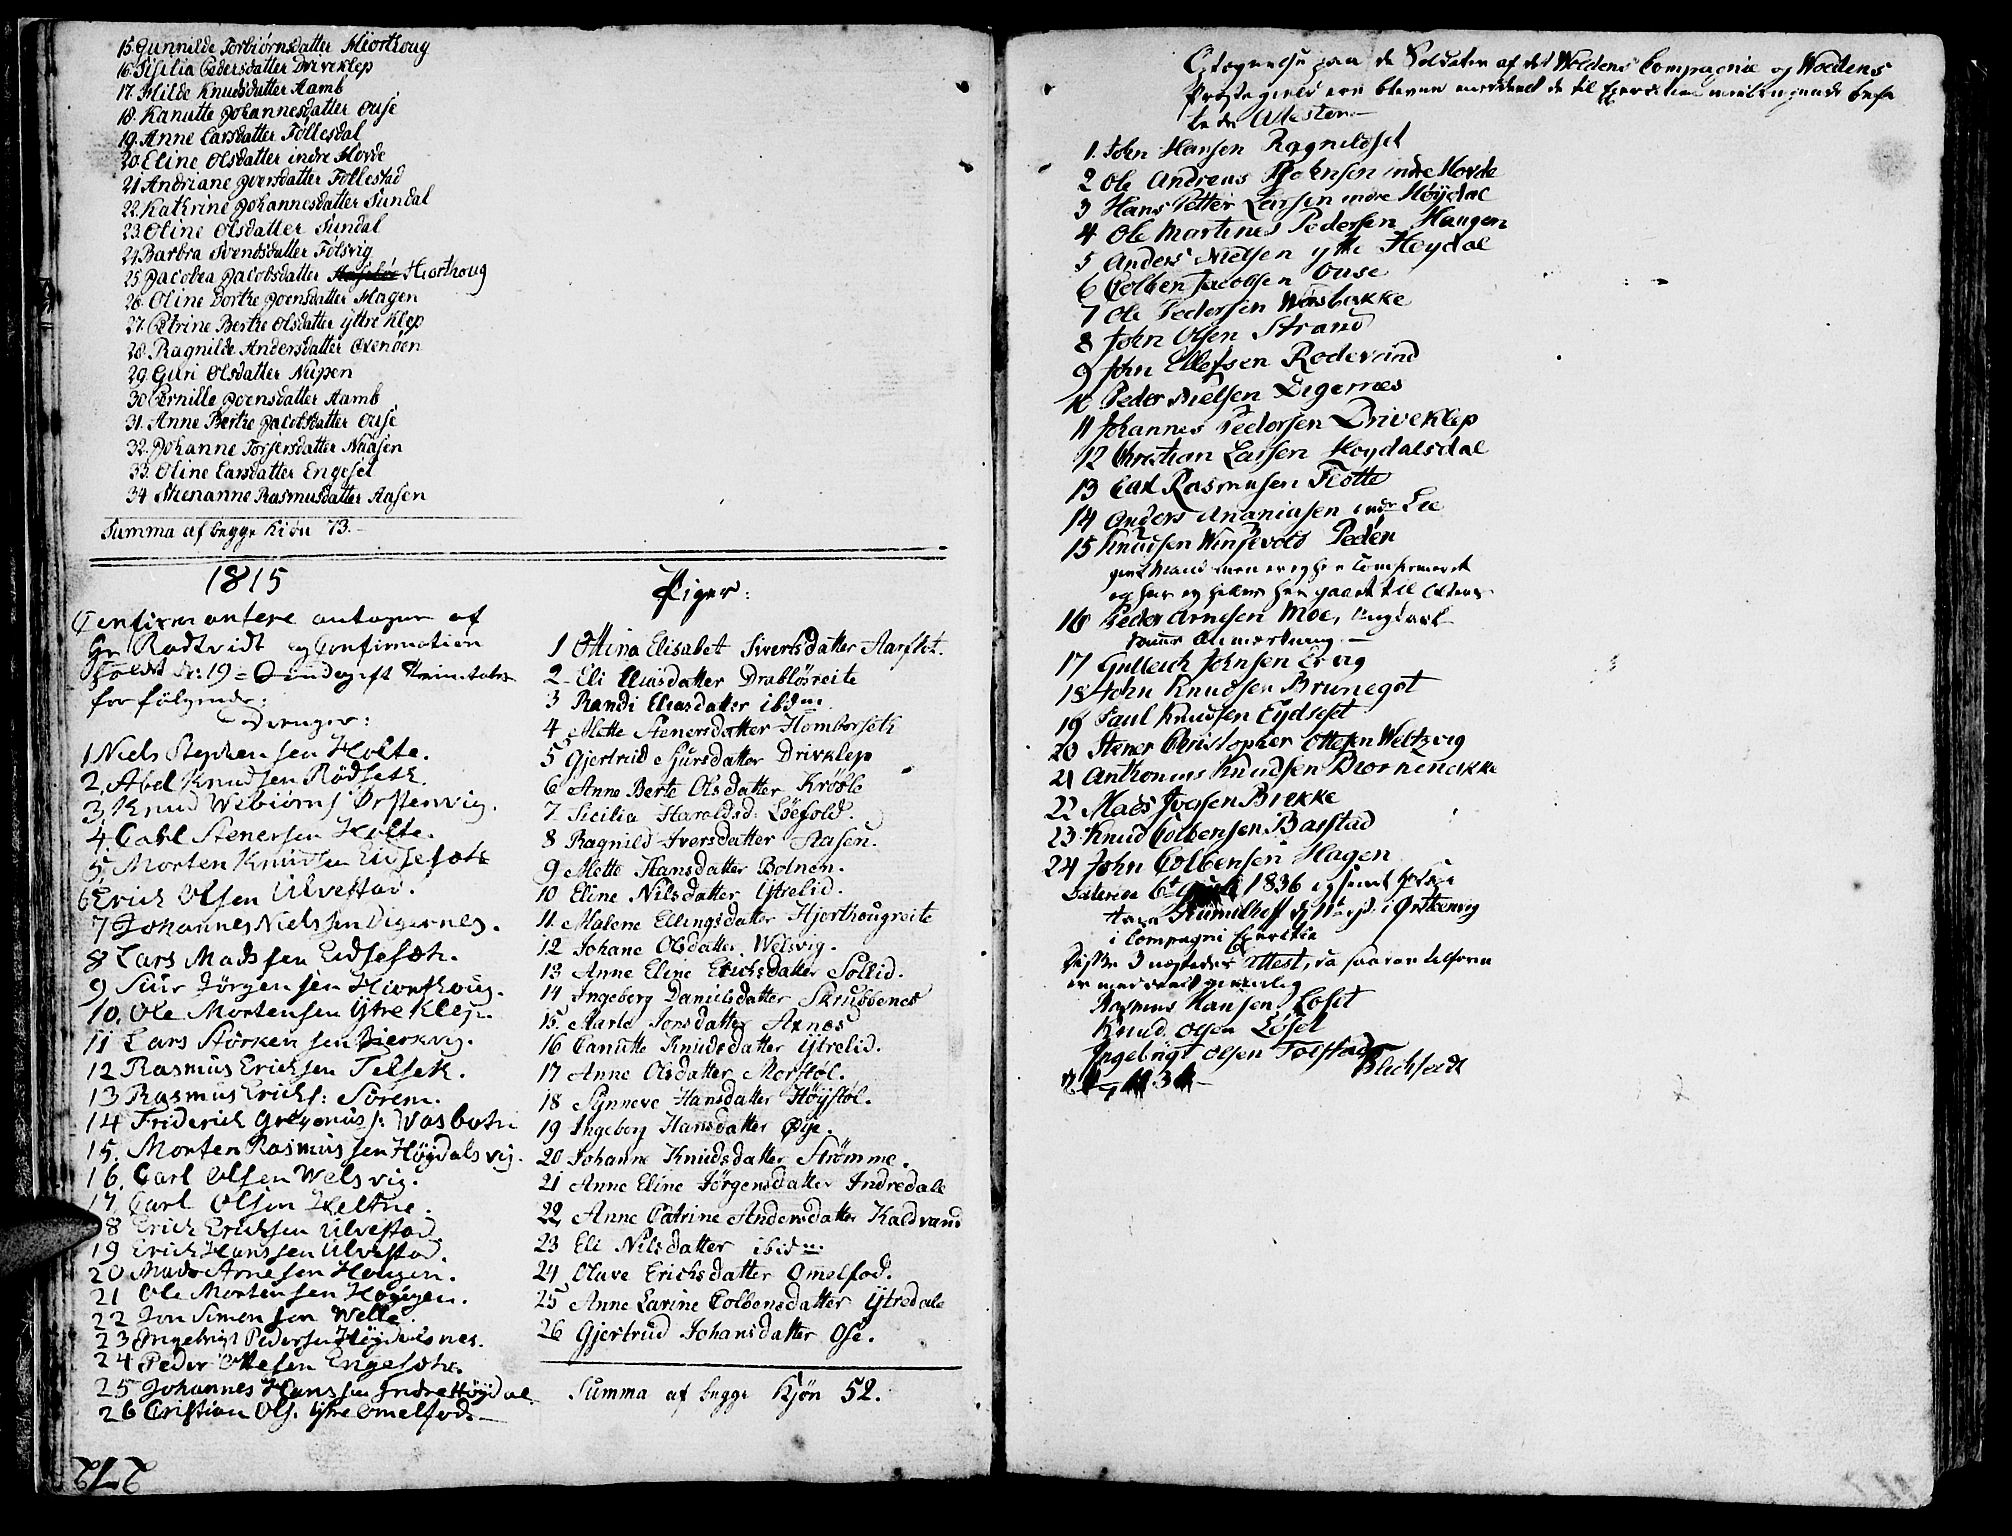 15. Gunnilde Torbiørnsdatter Hiorthoug
16. Sisilia Pedersdatter Driveklep
17. Milde Knudsdatter Aamb
18. Kanutte Johannesdatter Ouse
19. Anne Larsdatter Follesdal
20. Eline Olsdatter indre Horde
21 Andriane Iversdatter Follestad
22. Kathrine Johannesdatter Sundal
23. Oline Olsdatter Sundal
24 Barbra Svendsdatter Folsvig
25 Jacobea Jacobsdatter Hiorthoug
26. Oline Dorthe Joensdatter Hagen
27. Petrine Berthe Olsdatter ÿttre Klep
28. Ragnilde Andersdatter Oxenøen
29. Guri Olsdatter Nupen
30 Pernille Joensdatter Aamb
31. Anne Berthe Jacobsdatter Ouse
32. Johanne Torgersdatter Naasen
33. Oline Larsdatter Engeset
34 Stienanne Rasmusdatter Aasen
Summa af begge Kiøn 73.
1815
Confirmantere antagen af
Hr Rodtvidt og Confirmation
holdt
for følgende:
Drenger:
1 Niels Stephensen Holte.
2, Abel Knudsen Rödseth
3. Knud Webiørns Ørstenvig.
4. Carl Stenersen Holte.
5 Morten Knudsen Eidseseth
6 Erich Olsen Ulvestad.
7 Johannes Nielssen Digernes.
8 Lars Madssen Eidseseth.
9 Siur Jörgensen Hiorthoug.
10. Ole Mortensen Ÿtre Klep.
11 Lars Størkersen Bierkvig.
12 Rasmus Erichsen Telseth.
13 Rasmus Erichs: Sörem.
14 Friderich Gregoriuss: Vasbotn
15. Morten Rasmussen Höÿdalsvig.
16. Carl Olsen Welsvig.
17, Carl Olsen Heltne.
18 Erich Erichsen Ulvestad
19 Erich Hanssen Ulvestad.
20 Mads Arnesen Hougen.
21 Ole Mortensen Hougen.
22 Jon Simonsen Welle.
23 Ingebrigt Pedersen Höÿdalsnes.
24 Peder Ottesen Engeseth.
25 Johannes Hanssen Indre Höÿdal
26 Cristian Ols. ÿtre Omelfod.
272
Piger:
1 Ottina Elisabet Sivertsdatter Aarflot.
2 Eli Eliasdatter Drablösreite
3 Randi Eliasdatter ibdm:
4 Mette Stenersdatter Homborseth
5 Gjertrud Sjursdatter Drivklep
6 Anne Berte Olsdatter Kröble
7 Sicilia Haraldsd: Löefold.
8 Ragnild Iversdatter Aasen.
9 Mette Hansdatter Botnen.
10 Eline Nilsdatter Ÿtrelid.
11 Malene Ellingsdatter Hjorthougreite
12 Johane Olsdatter Welsvig.
13 Anne Elene Erichsdatter Sollid.
14 Ingeberg Danielsdatter Skrubbenes
15 Marte Jonsdatter Axnes
16 Canutte Knudsdatter Ÿtrelid.
17 Anne Olsdatter Morstöl.
18 Synneve Hansdatter Höÿstöl.
19 Ingeborg Hansdatter Øÿe.
20 Johanne Knudsdatter Strömme.
21 Anne Eline Jörgensdatter Indredale
22 Anne Catrine Andersdatter Kaldvand
23 Eli Nilsdatter ibidm:
24 Olave Erichsdatter Omelfod.
25 Anne Larine Colbensdatter Ÿtredale
26 Gjertrud Johansdatter Ose.
Summa af begge Kjön 52.
paa de Soldater af det Woldens Compagnie og Woldens
Præstegield ere bleven
Attester
1. John Hansen Ragnildset
2 Ole Andreas Johnsen indre Horde
3 Hans Petter Larsen indre Høÿdal
4 Ole Martines Pedersen Haugen
5 Anders Nielsen ytre Heydal
6 Colben Jacobsen Ouse
7 Ole Pedersen Wassbakke
8 John Olsen Strand
9 John Ellefsen Rodevand
10 Peder Nielsen Digernæs
11 Johannes Pedersen Driveklep
12 Christian Larsen Hoydalsdal
13 Carl Rasmusen Flotte
14 Anders Ananiasen indr Lie
15 Knudsen Winsevold Peder
gift Mand men er ey her Confirmeret
og har ey heller her gaaet til Alters
16 Peder Arnesen Moe, Ungkarl
samme Anmerkning.
17 Gulleich Johnsen Ervig
18 John Knudsen Brunegot
19 Paul Knudsen Eydseset
20 Stener Christopher Ottesen Weltzvig
21 Anthonius Knudsen Biørnenakke
22 Mads Iversen Brekke
23 Knud Colbensen Barstad
24 John Colbensen Hagen
1836
i Ørstenvig
i Compagni Exersitie
Attest,
Rasmus Hansen Løset
Knud Olsen Løset
Ingebrigt Olsen Tolstad
Blichfeldt